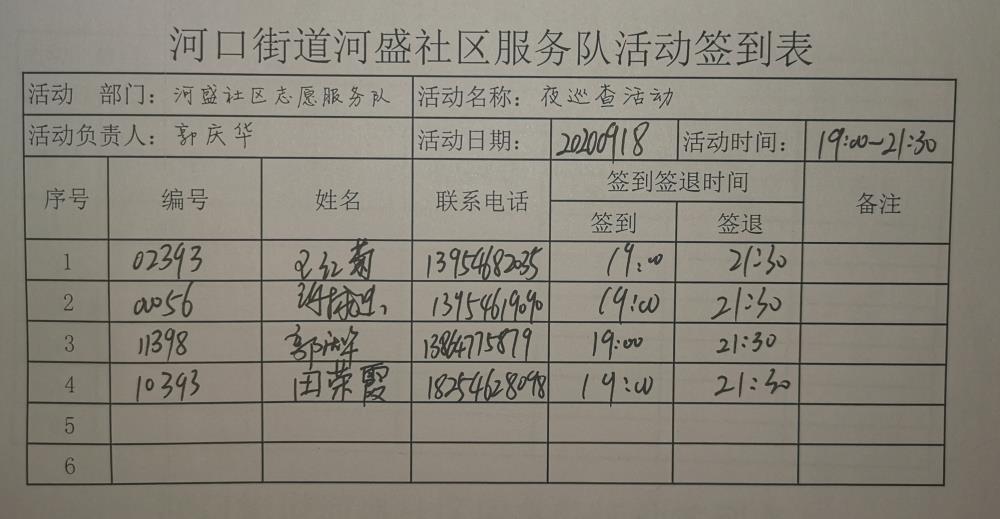 河口街道河盛社区服务队活动签到表
活动 部门：河盛社区志愿服务队 活动名称：夜巡查活动
活动负责人：郭庆华 活动日期： 20200918 活动时间： 19:00-21:30
序号 编号 姓名 联系电话 签到签退时间 备注
签到 签退
1 02393 王红菊 13954682035 19:00 21:30
2 00056 13954619090 19:00 21:30
3 11398 郭庆华 13864775879 19:00 21:30
4 10393 田荣霞 18254628098 19:00 21:30
5
6